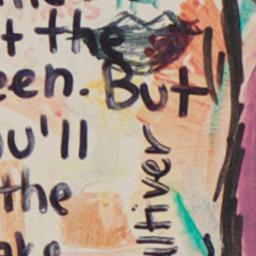 t the
een. But
ou'll
the
ake
ultiver